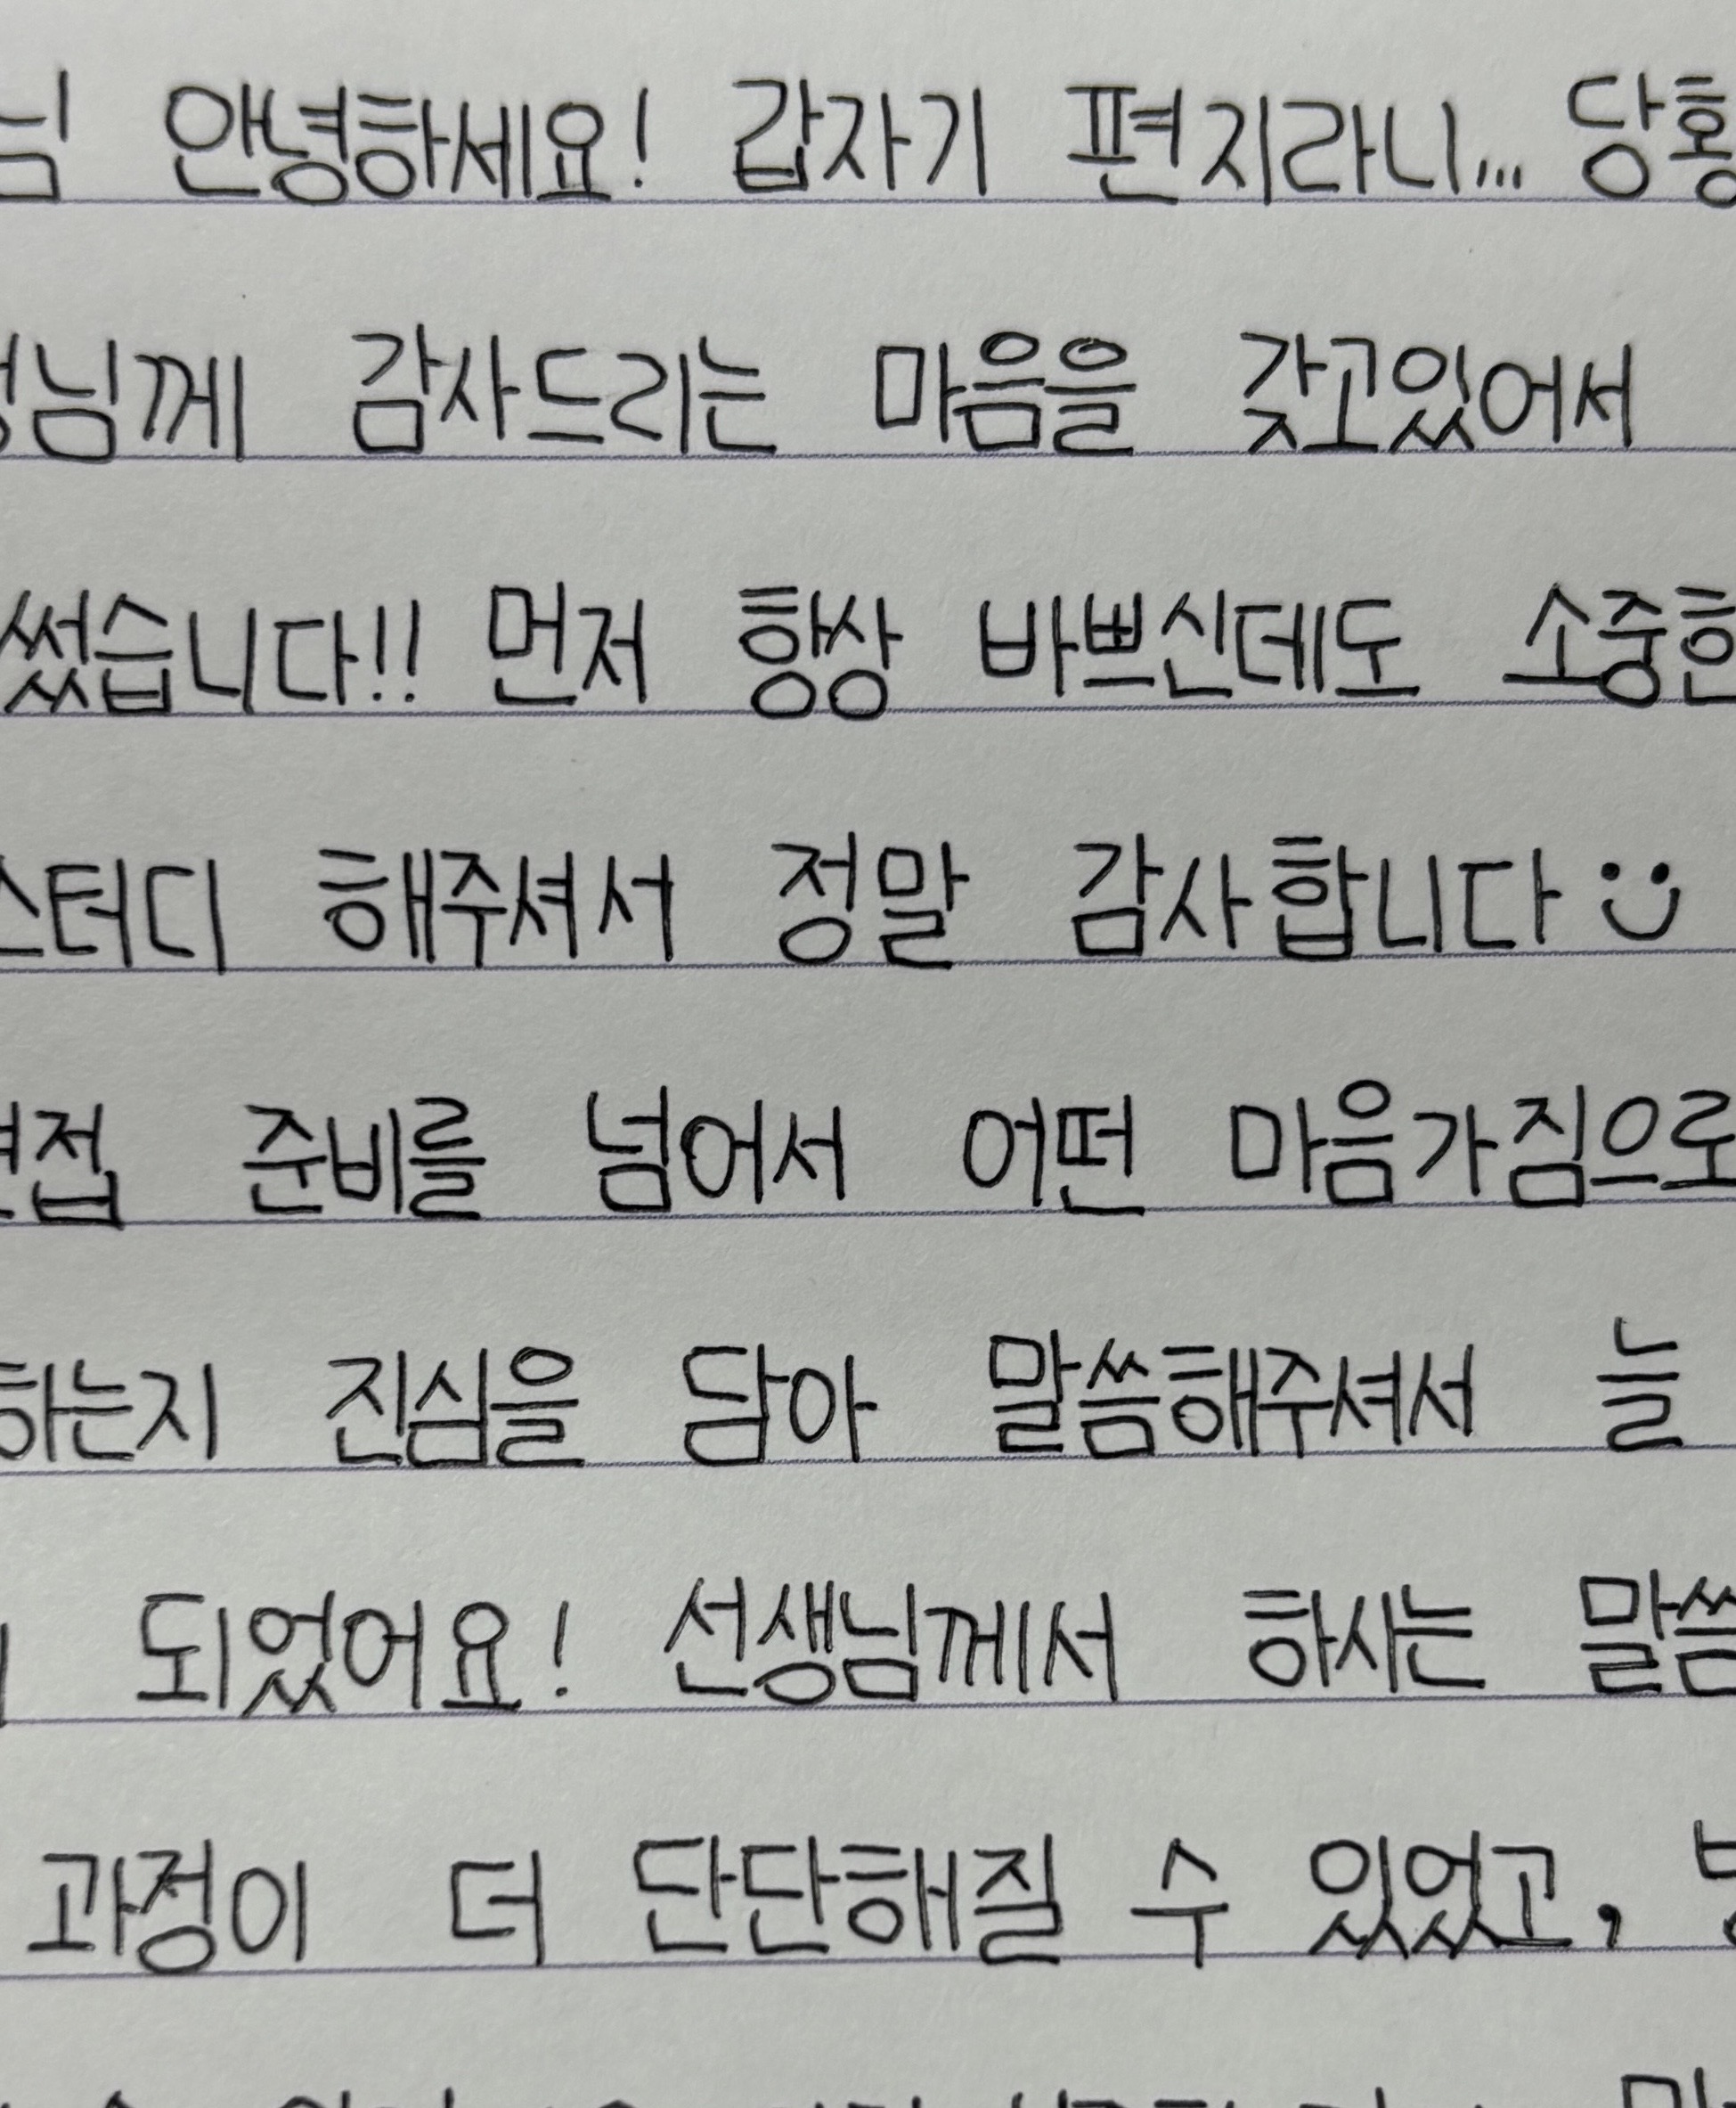 님 안녕하세요! 갑자기 편지라니... 당황
생님께 감사드리는 마음을 갖고있어서
썼습니다!! 먼저 항상 바쁘신데도 소중한
스터디 해주셔서 정말 감사합니다 :)
면접 준비를 넘어서 어떤 마음가짐으로
하는지 진심을 담아 말씀해주셔서 늘
되었어요! 선생님께서 하시는 말씀
과정이 더 단단해질 수 있었고,